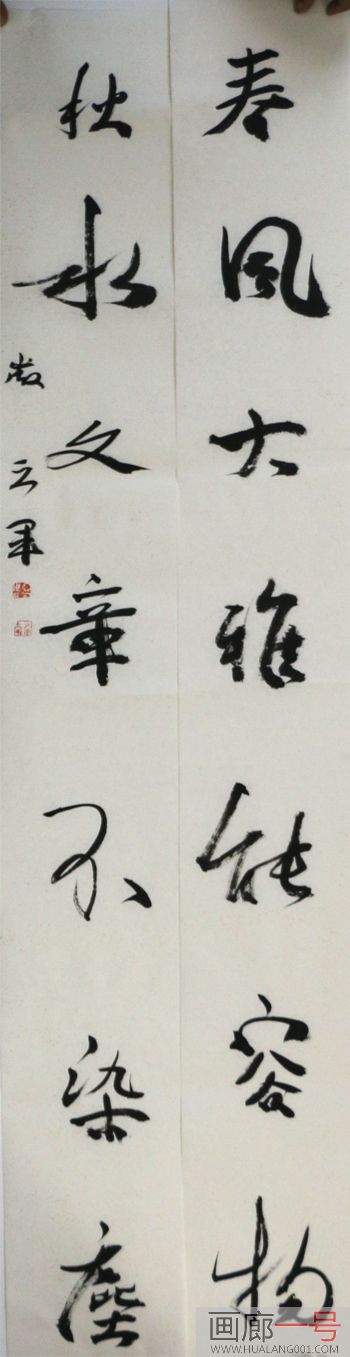 春风大雅能容物
秋水文章不染尘
画廊一号
WWW.HUALANG001.COM